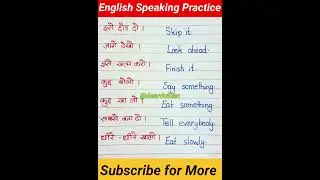 English Speaking Practice
इसे छोड़ दो । Skip it.
आगे देखो । Look ahead.
इसे खत्म करो । Finish it.
कुछ बोलो । Say something.
कुछ खा लो । Eat something.
सबको बता दो । Tell everybody.
धीरे-धीरे खाओ । Eat slowly.
Subscribe for More